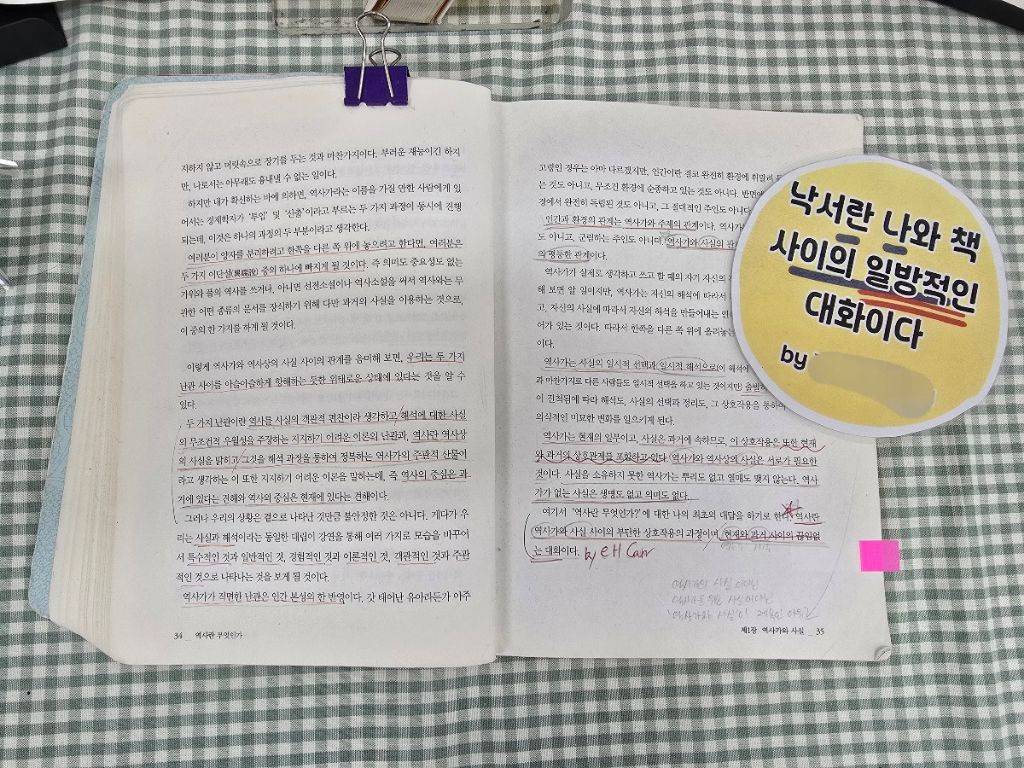 지하지 않고 머릿속으로 장기를 두는 것과 마찬가지이다. 부러운 재능이긴 하지
만, 나로서는 아무래도 흉내낼 수 없는 일이다.
하지만 내가 확신하는 바에 의하면, 역사가라는 이름을 가질 만한 사람에게 있
어서는 경제학자가 '투입' 및 '산출'이라고 부르는 두 가지 과정이 동시에 진행
되는데, 이것은 하나의 과정의 두 부분이라고 생각한다.
여러분이 양자를 분리하려고 한쪽을 다른 쪽 위에 놓으려고 한다면, 여러분은
두 가지 이단설(異端說) 중의 하나에 빠지게 될 것이다. 즉 의미도 중요성도 없는
가위와 풀의 역사를 쓰거나, 아니면 선전소설이나 역사소설을 써서 역사와는 무
관한 어떤 종류의 문서를 장식하기 위해 다만 과거의 사실을 이용하는 것으로,
이 중의 한 가지를 하게 될 것이다.
이렇게 역사가와 역사상의 사실 사이의 관계를 음미해 보면, 우리는 두 가지
난관 사이를 아슬아슬하게 항해하는 듯한 위태로운 상태에 있다는 것을 알 수
있다.
두 가지 난관이란 역사를 사실의 객관적 편찬이라 생각하고 해석에 대한 사실
의 무조건적 우월성을 주장하는 지지하기 어려운 이론의 난관과, 역사란 역사상
의 사실을 밝히고 그것을 해석 과정을 통하여 정복하는 역사가의 주관적 산물이
라고 생각하는 이 또한 지지하기 어려운 이론을 말하는데, 즉 역사의 중심은 과
거에 있다는 견해와 역사의 중심은 현재에 있다는 견해이다.
그러나 우리의 상황은 겉으로 나타난 것만큼 불안정한 것은 아니다. 게다가 우
리는 사실과 해석이라는 동일한 대립이 강연을 통해 여러 가지로 모습을 바꾸어
서 특수적인 것과 일반적인 것, 경험적인 것과 이론적인 것, 객관적인 것과 주관
적인 것으로 나타나는 것을 보게 될 것이다.
역사가가 직면한 난관은 인간 본성의 한 반영이다. 갓 태어난 유아라든가 아주
34 _ 역사란 무엇인가
고령인 경우는 아마 다르겠지만, 인간이란 결코 완전히 환경에 휘말려
는 것도 아니고, 무조건 환경에 순종하고 있는 것도 아니다. 반면에
경에서 완전히 독립된 것도 아니고, 그 절대적인 주인도 아니다.
인간과 환경의 관계는 역사가와 주제의 관계이다. 역사가
도 아니고, 군림하는 주인도 아니며, 역사가와 사실의 관
의 평등한 관계이다.
역사가가 실제로 생각하고 쓰고 할 때의 자기 자신의
해 보면 알 일이지만, 역사가는 자신의 해석에 따라서
고, 자신의 사실에 따라서 자신의 해석을 만들어내는
어가 있는 것이다. 따라서 한쪽을 다른 쪽 위에 올려놓는
이다.
역사가는 사실의 일시적 선택과 일시적 해석으로(이 해석에
과 마찬가지로 다른 사람들도 일시적 선택을 하고 있는 것이지만) 출발
이 진척됨에 따라 해석도, 사실의 선택과 정리도, 그 상호작용을 통하여
의식적인 미묘한 변화를 일으키게 된다.
역사가는 현재의 일부이고, 사실은 과거에 속하므로, 이 상호작용은 또한 현재
와 과거의 상호관계를 포함하고 있다. 역사가와 역사상의 사실은 서로가 필요한
것이다. 사실을 소유하지 못한 역사가는 뿌리도 없고 열매도 맺지 않는다. 역사
가가 없는 사실은 생명도 없고 의미도 없다.
여기서 '역사란 무엇인가?'에 대한 나의 최초의 대답을 하기로 한다. 역사란
역사가와 사실 사이의 부단한 상호작용의 과정이며, 현재와 과거 사이의 끊임없
는 대화이다. by EH Carr
제1장 역사가와 사실 _ 35
낙서란 나와 책
사이의 일방적인
대화이다
by